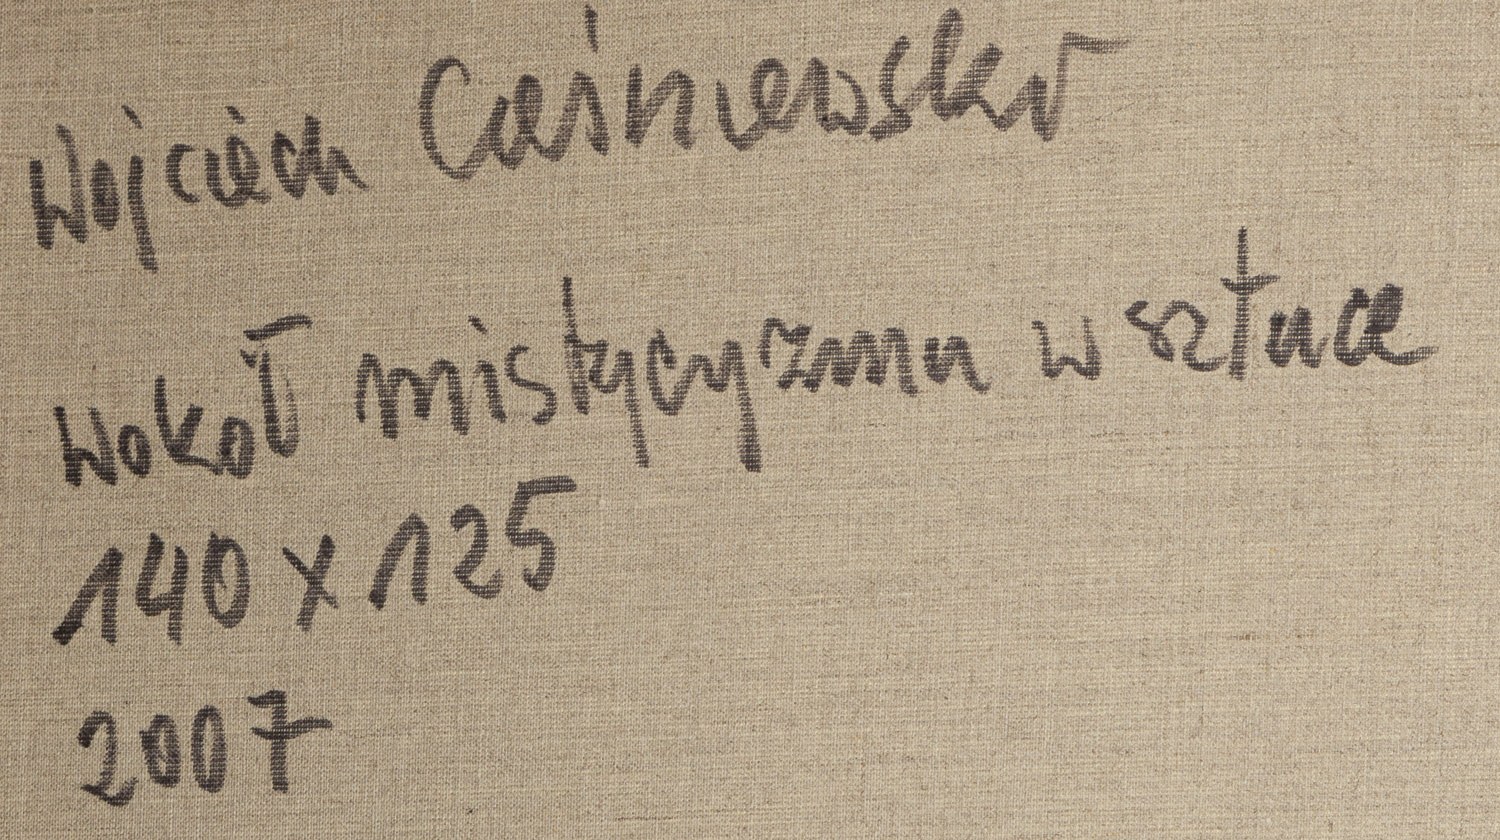 Wojciech Cieśniewski
Wokół mistycyzmu w sztuce
140 x 125
2007